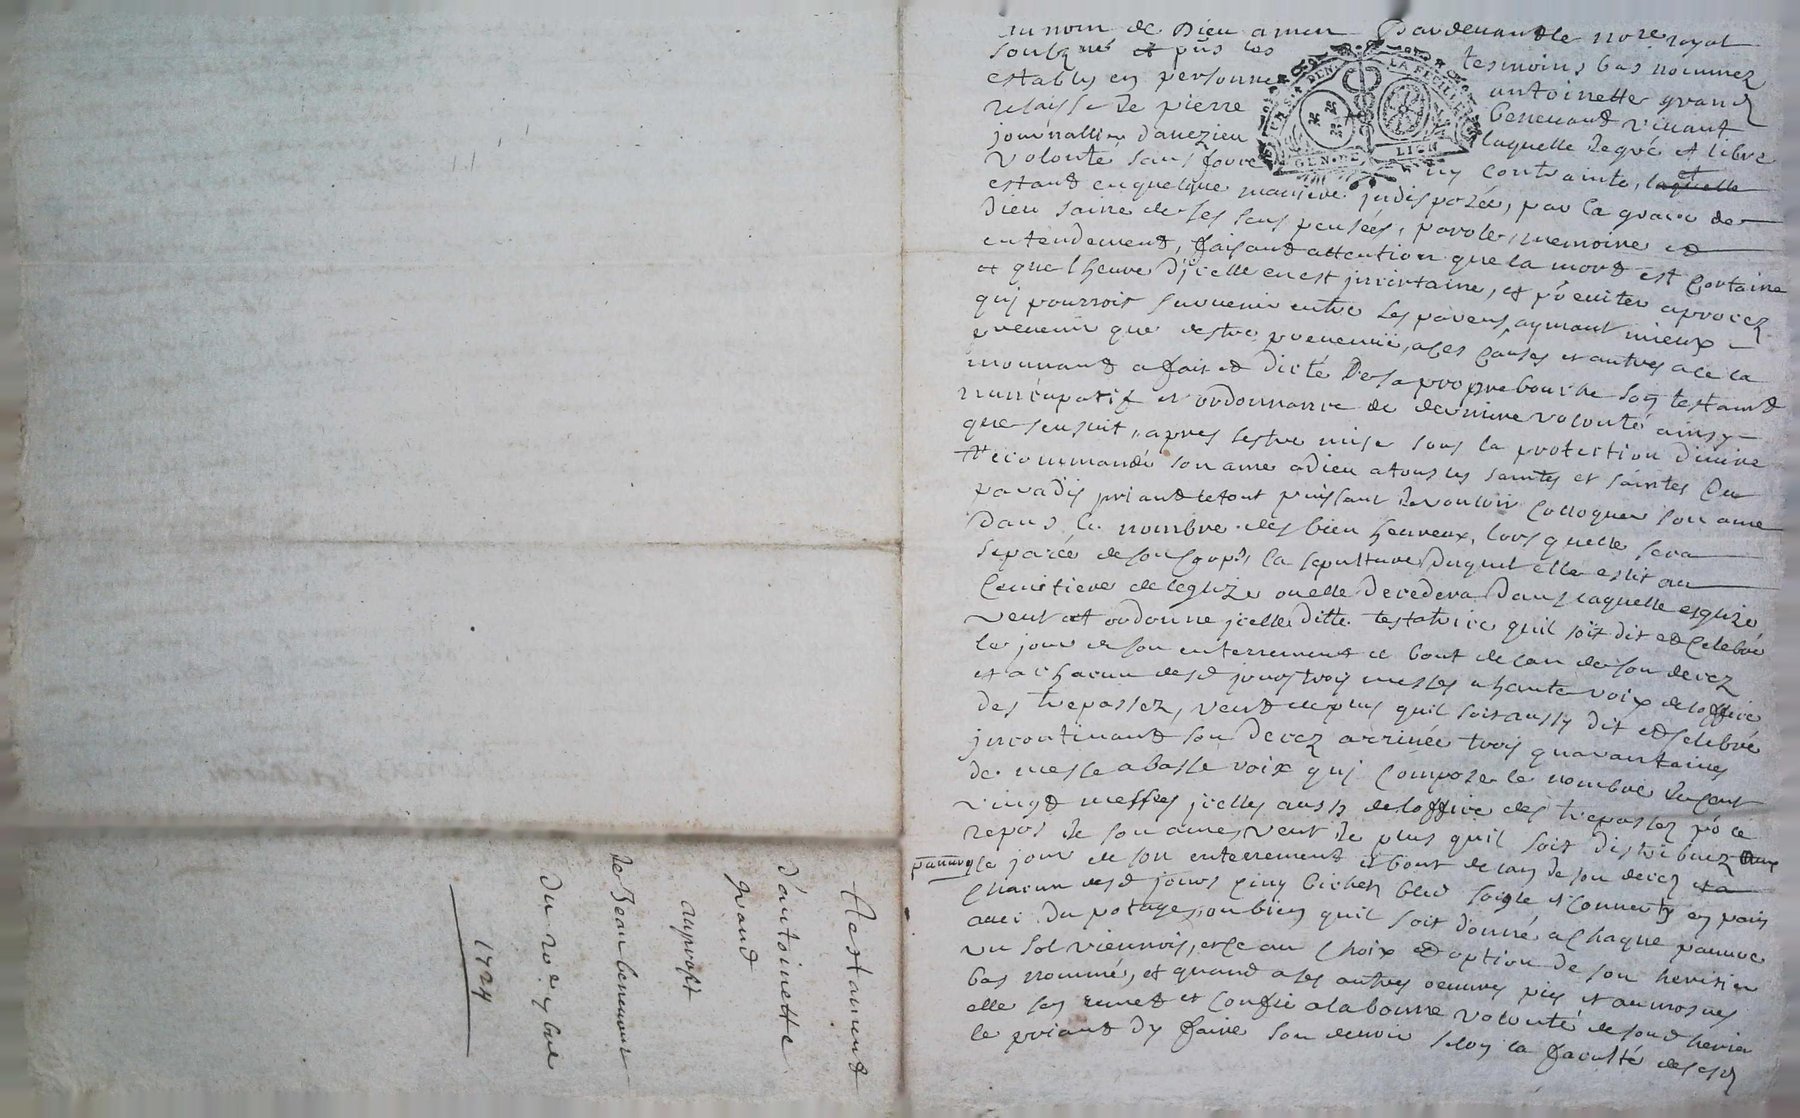 Au nom de Dieu amen Pardevant le no.re royal
soubz.né et p̄ns les tesmoins bas nommez
estably en personne antoinette grand
relaisse de pierre benevant vivant
journallier d'avezieu laquelle de gré et libre
volonté sans force ny contrainte, et laquelle
estant en quelque maniere jndisposée, par la grace de
Dieu saine de ses sens pensées, parole, memoire et
entendement, faisant attention que la mort est certaine
et que l'heure d'jcelle en est jncertaine, et p̄ eviter aprocez
quj pourroit survenir entre ses parens, aymant mieux
prevenir que destre prevenuë, a ces causes et autres a ce la
mouvant a fait et dicté de sa propre bouche son testamt
nuncupatif et ordonnance de derniere volonté ainsy
que sensuit, apres sestre mise sous la protection divine
recommandé son ame a dieu a tous les saints et saintes du
paradis priant le tout puissant de vouloir colloquer son ame
dans le nombre des bien heureux, lors quelle sera
separée de son corps, la sepulture duquel elle eslit au
cemetiere de leglize ou elle decedera dans laquelle esglize
veut et ordonne jcelle ditte testatrice quil soit dit et celebré
le jour de son enterrement et bout de lan de son decez
et a chacun desd jours trois messes a haute voix de loffice
des trepassez, veut de plus quil soit aussy dit et celebré
jncontinant son decez arrivée trois quarantaines
de messe a basse voix quj compose le nombre de cent
vingt messes jcelles aussy de loffice des trepassez p̄ le
repos de son ame, veut de plus quil soit distribuez aux
pauvres le jour de son enterrement et bout de lan de son decez et a
chacun desd jours cinq bichets bled soigle et convertis en pain
avec du potage, ou bien quil soit donné a chaque pauvre
un sol viennois, et ce au choix et option de son heritier
bas nommé, et quand a ses autres oeuvres pies et aumosnes
elle sen remet et confie a la bonne volonté de sond herier
le priant dy faire son devoir selon la faculté de ses
Testament
d'antoinette
grand
auprofit
de Jean benevant
du 1724